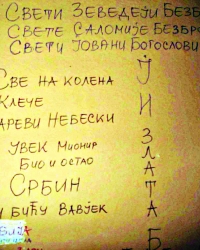 Свети Зеведеји Безб
Свете Саломије Безбро
Свети Јовани Богослови
Све на колена
Клече
ареви Небески
Увек Мионир
Био и остао
Србин
и бићу Вавјек
Ј
И
З
Л
А
Т
А
Б